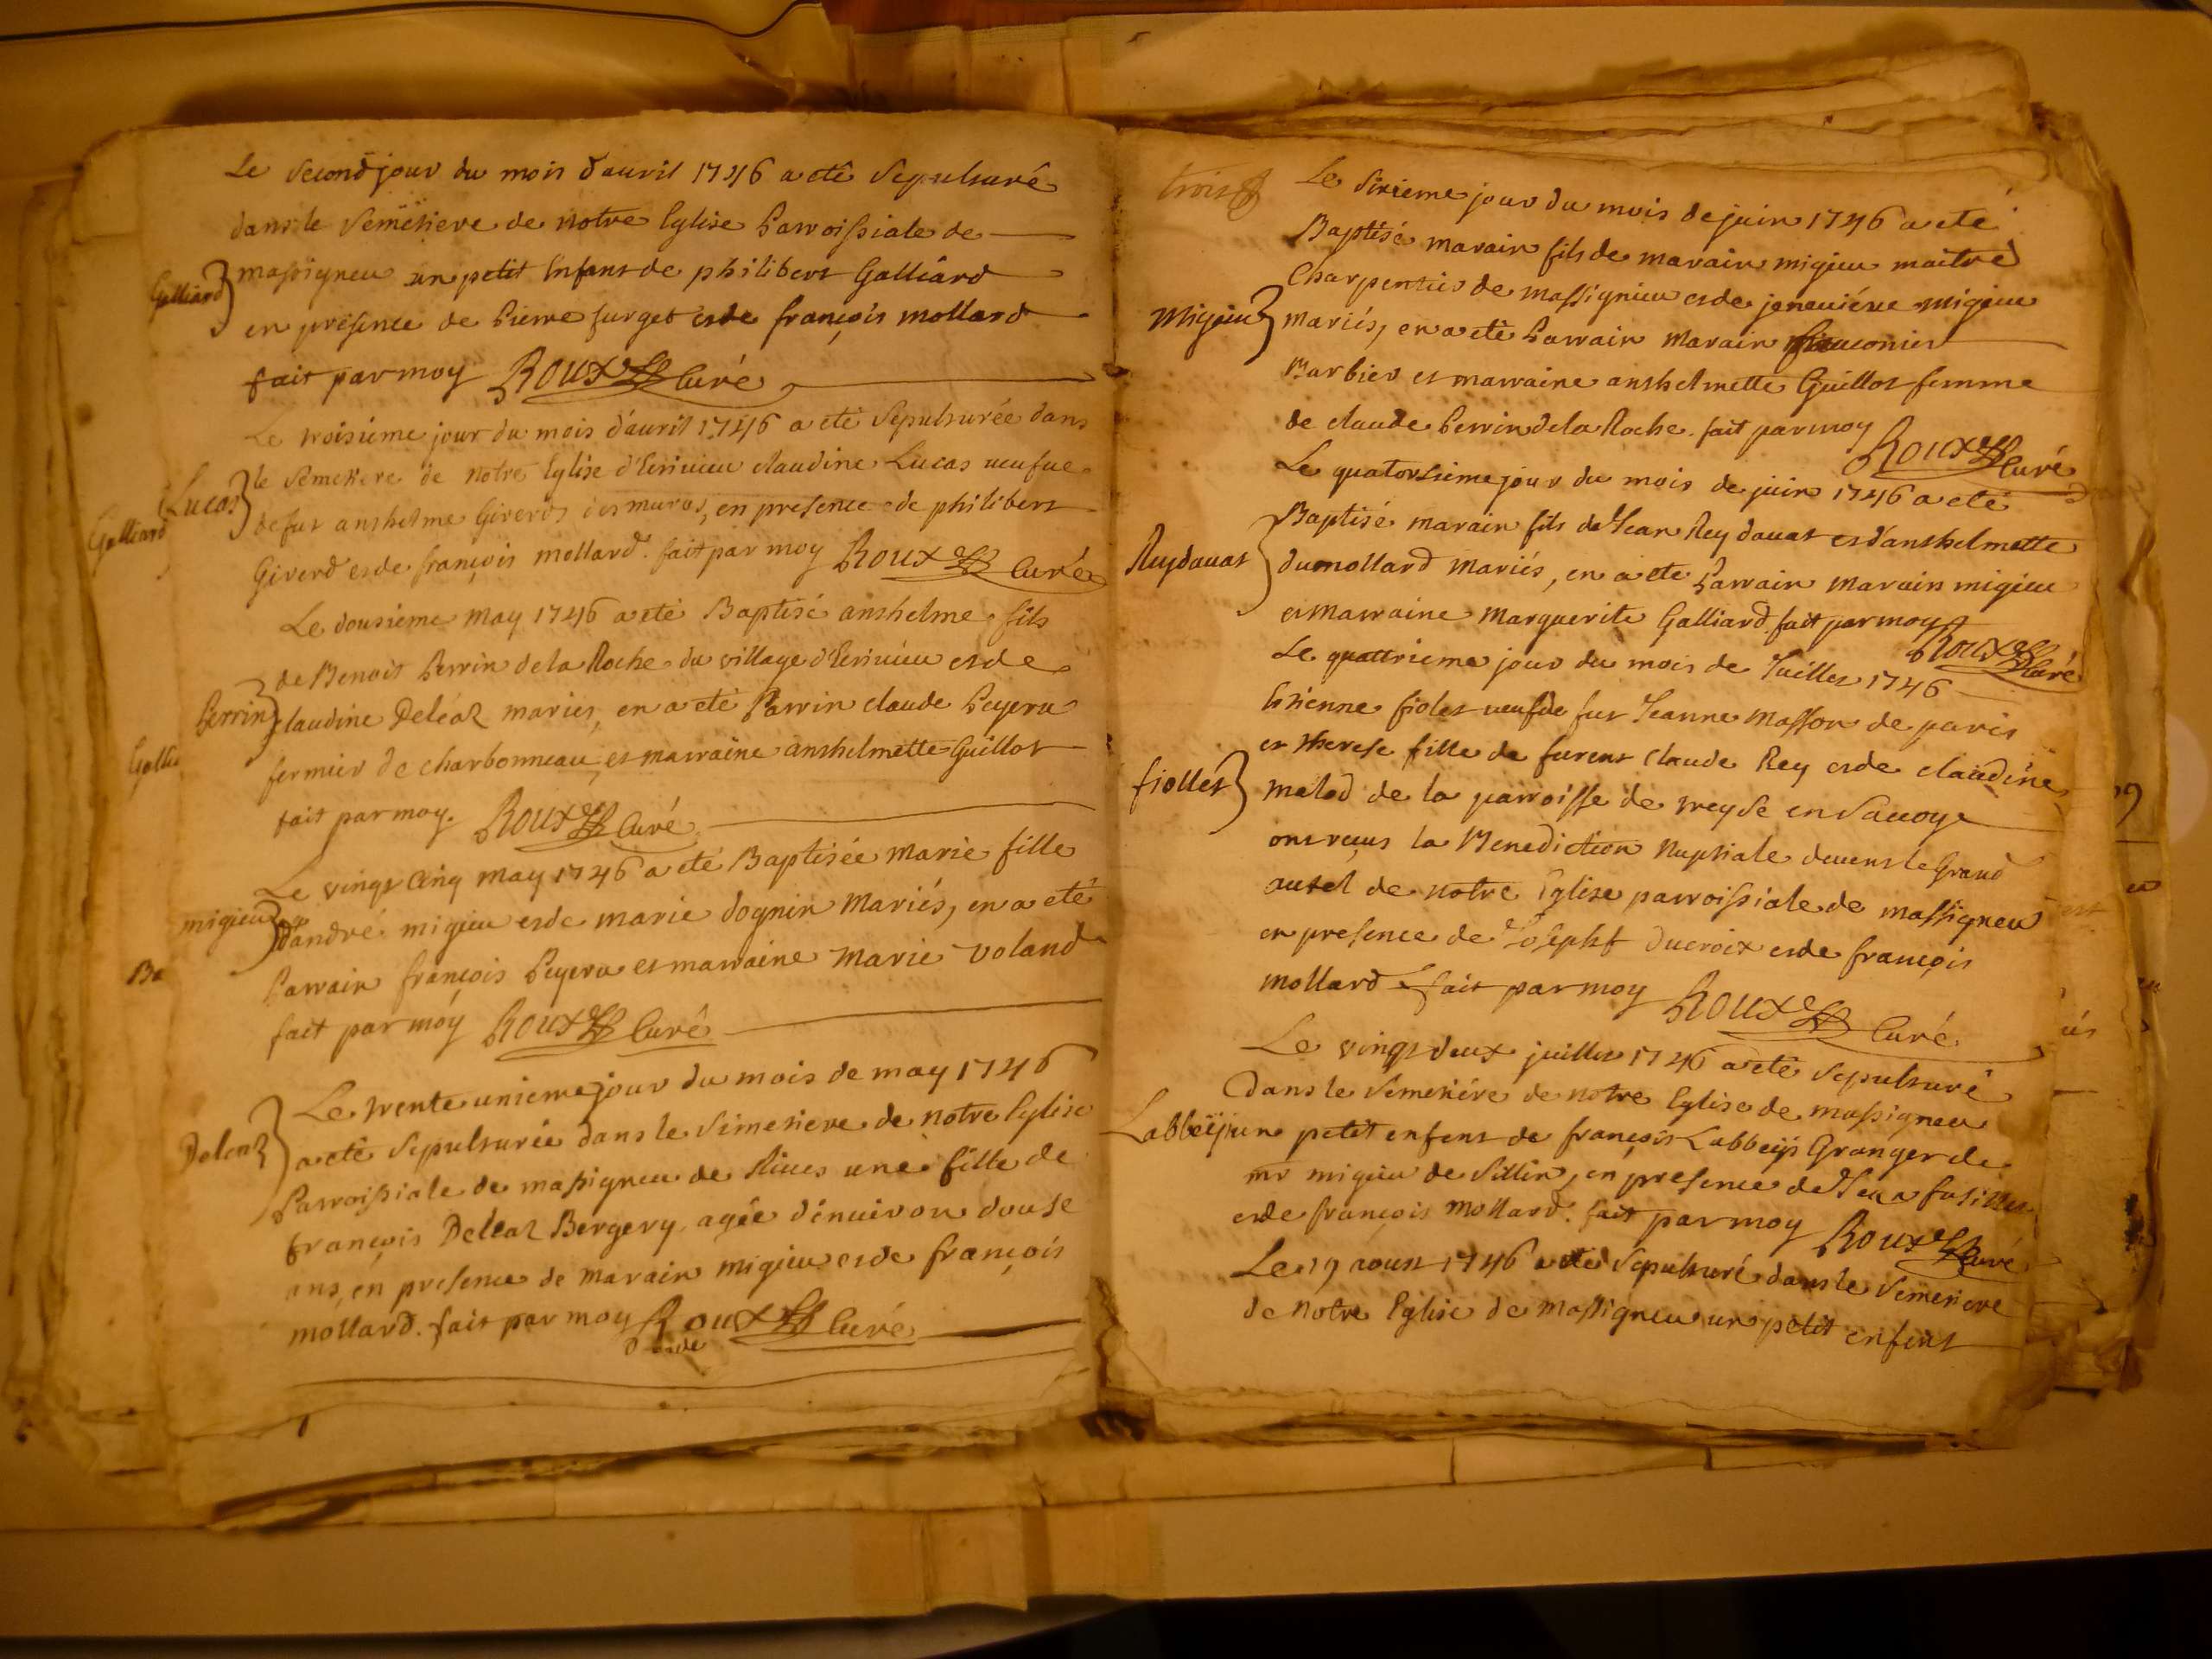 Le second jour du mois d'auril 1746 a eté sepulturé
dans le semetiere de notre Eglise Parroissiale de
Galliard
massigneu un petit Enfant de philibert Galliard
en presence de Pierre furget et de françois mollard
fait par moy Roux Curé
Le troisieme jour du mois d'auril 1746 a eté sepulturée dans
Lucas
le semetiere de notre Eglise d'Eriuieu claudine Lucas ueufue
Galliard
de fut anthelme Giverd, en presence de philibert
Giverd et de françois mollard. fait par moy Roux Curé
Le dousieme may 1746 a eté Baptisé anthelme fils
de Benoit Perrin de la Roche du village d'Eriuieu et de
Perrin
claudine Deléaz mariés, en a eté Parrin claude Peyeru
Gallia
fermier de charbonneau et marraine anthelmette Guillot
fait par moy. Roux Curé
Le vingt cinq may 1746 a eté Baptisée Marie fille
migieu
d'andré migieu et de marie dognin Mariés, en a eté
Parrain françois Peyeru et marraine Marie Voland
Ba
fait par moy Roux Curé
Le trente unieme jour du mois de may 1746
Deleaz
a eté sepulturée dans le simetiere de notre Eglise
Parroissiale de massigneu de Riues une fille de
françois Deleaz Bergery agée d'enuiron douse
ans, en presence de marain migieu et de françois
mollard. fait par moy Roux Curé
trois
Le sixieme jour du mois de juin 1746 a eté
Baptisé marain fils de marain migieu maitre
Charpentier de massignieu et de jeneuiéue migieu
Migieu
Mariés, en a eté Parrain Marain fauconier
Barbier et marraine anthelmette Guillot femme
de claude Perrin de la Roche. fait par moy
Roux Curé
Le quatorsieme jour du mois de juin 1746 a eté
Baptisé marain fils de Jean Rey dauat et d'anthelmette
Reydauat
dumollard Mariés, en a eté Parrain Marain migieu
et Marraine Marguerite Galliard fait par moy
Roux Curé
Le quattrieme jour du mois de Juillet 1746
Etienne fiolet ueuf de fut Jeanne Masson de paris
et therese fille de furent Claude Rey et de claudine
fiollet
melod de la parroisse de treyse en Sauoye
ont reçus la Benediction Nuptiale deuent le Grand
autel de notre Eglise parroissiale de massigneu
en presence de Josepht Ducroix et de françois
mollard fait par moy Roux Curé
Le vingt deux juillet 1746 a eté sepulturé
dans le semetiére de notre Eglise de massigneu
Labbeÿ
un petit enfent de françois Labbeÿ Granger de
mr migieu de sillin, en presence de Jean
et de françois Mollard. fait par moy Roux Curé
Le 19 aoust 1746 a eté sepulturé dans le semetiere
de notre Eglise de massigneu un petit enfent